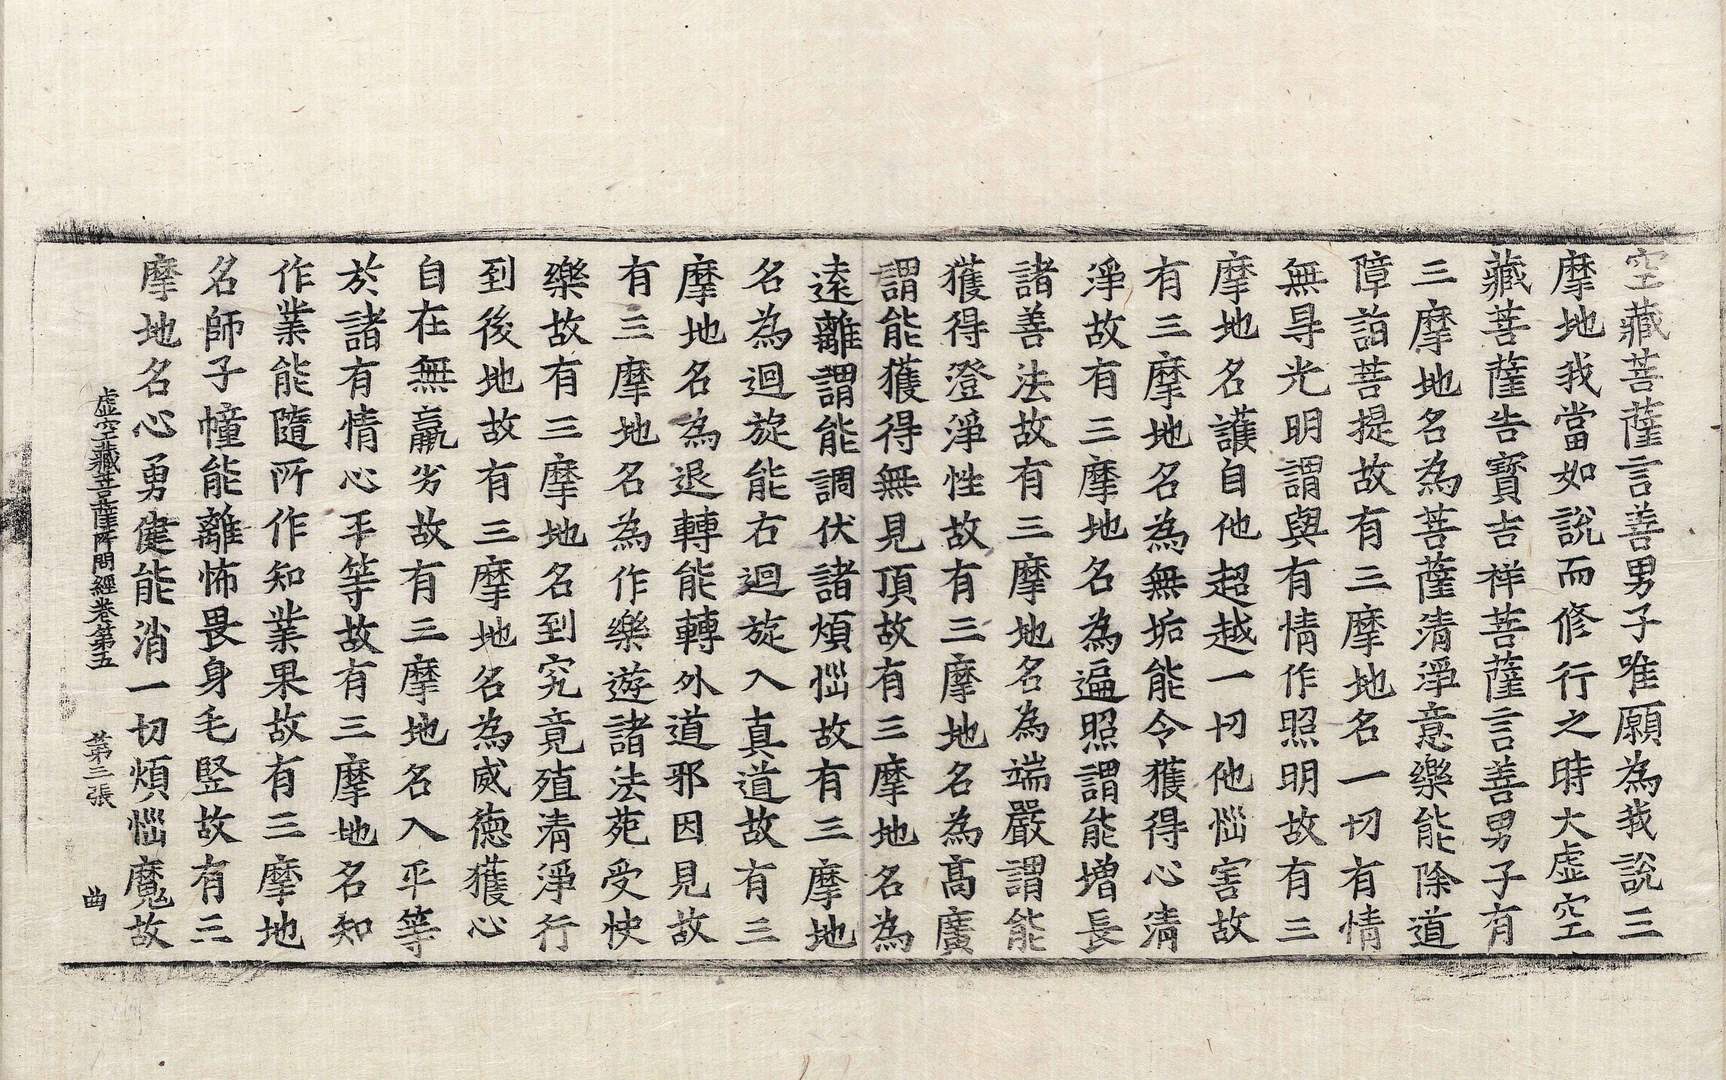 空藏菩薩言善男子唯願為我說三
摩地我當如說而修行之時大虛空
藏菩薩告寶吉祥菩薩言善男子有
三摩地名為菩薩清淨意樂能除道
障詣菩提故有三摩地名一切有情
無㝵光明謂與有情作照明故有三
摩地名護自他超越一切他惱害故
有三摩地名為無垢能令獲得心清
淨故有三摩地名為遍照謂能增長
諸善法故有三摩地名為端嚴謂能
獲得澄淨性故有三摩地名為高廣
謂能獲得無見頂故有三摩地名為
遠離謂能調伏諸煩惱故有三摩地
名為迴旋能右迴旋入真道故有三
摩地名為退轉能轉外道邪因見故
有三摩地名為作樂遊諸法苑受快
樂故有三摩地名到究竟殖清淨行
到後地故有三摩地名為威德獲心
自在無羸劣故有三摩地名入平等
於諸有情心平等故有三摩地名知
作業能隨所作知業果故有三摩地
名師子幢能離怖畏身毛竪故有三
摩地名心勇健能消一切煩惱魔故
虛空藏菩薩所問經卷第五 第三張 曲